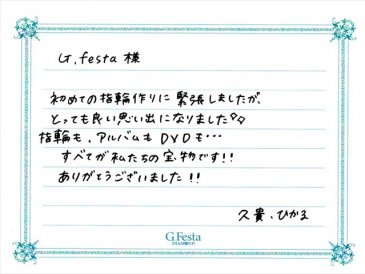 G.festa 様
初めての指輪作りに緊張しましたが、
とっても良い思い出になりました♡♡
指輪も、アルバムもDVDも…
すべてが私たちの宝物です!!
ありがとうございました!!
久貴、ひかる
G.Festa
DIAMOND